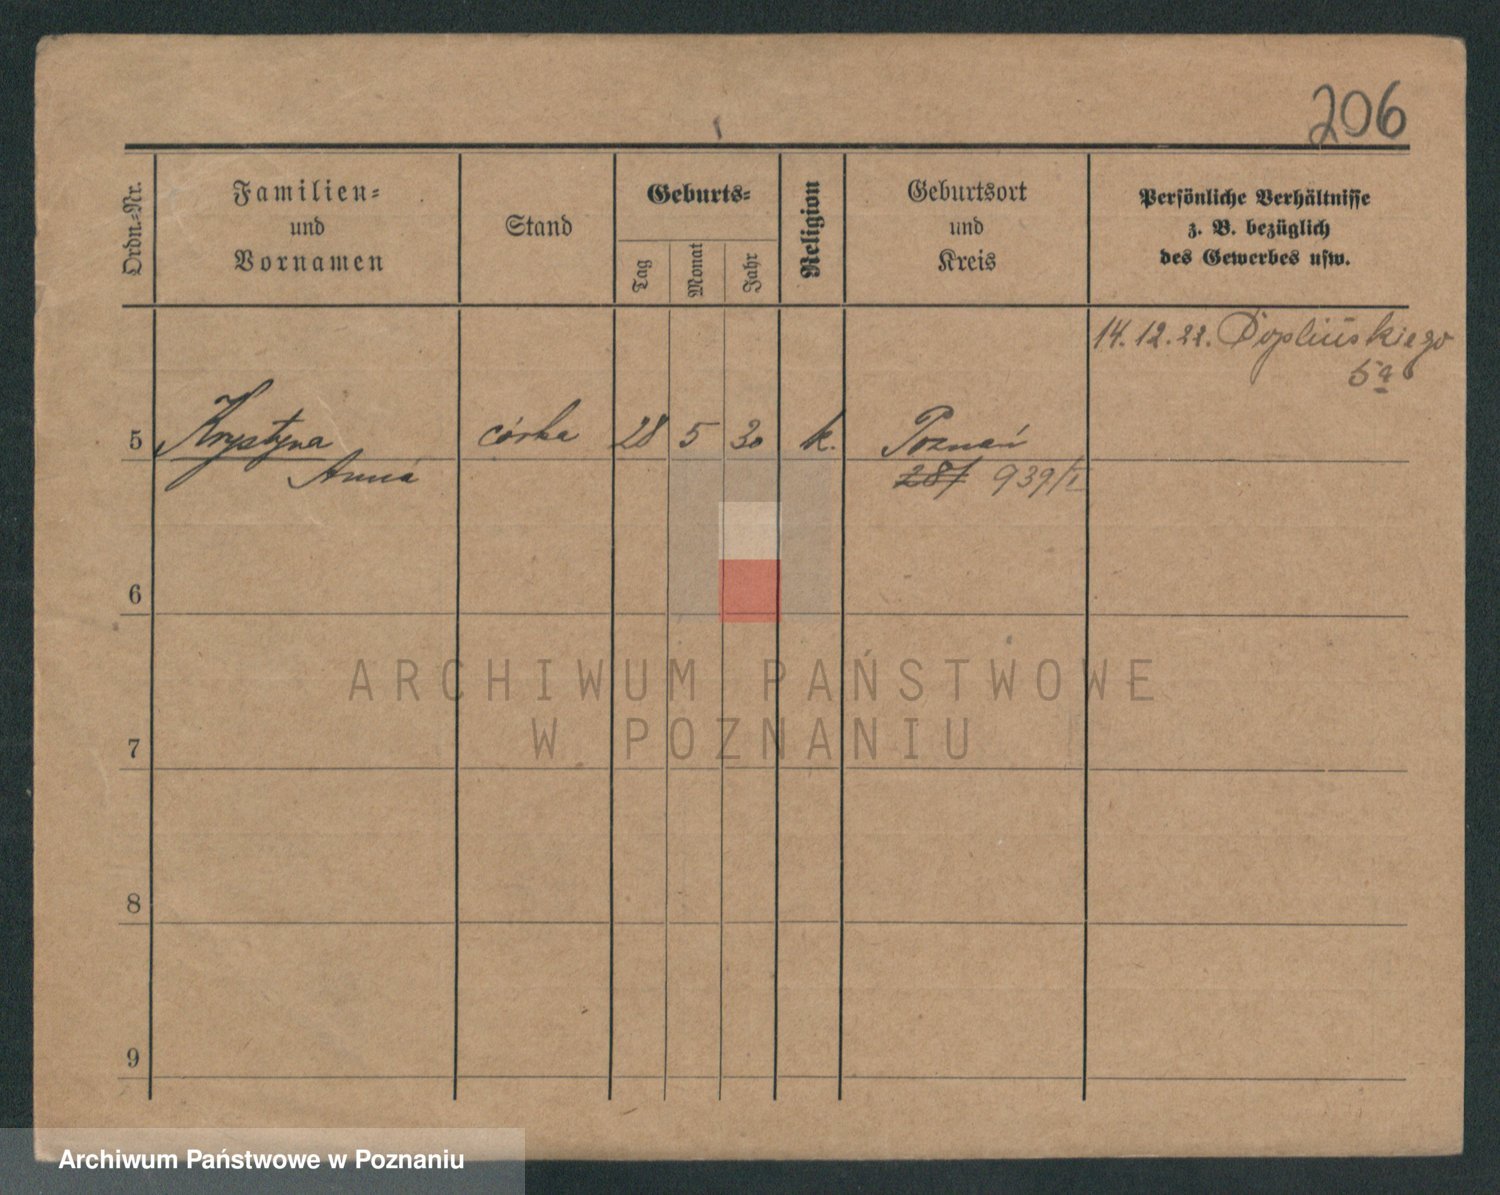 206
Ordn.-Nr.
Familien-
und
Vornamen
Stand
Geburts-
Tag
Monat
Jahr
Religion
Geburtsort
und
Kreis
Persönliche Verhältnisse
z. B. bezüglich
des Gewerbes usw.
14. 12. 22.
5a
5 Krystyna córka 28 5 30 k. Poznań
Anna 28/ 939/I
6
7
8
9
ARCHIWUM PAŃSTWOWE
W POZNANIU
Archiwum Państwowe w Poznaniu